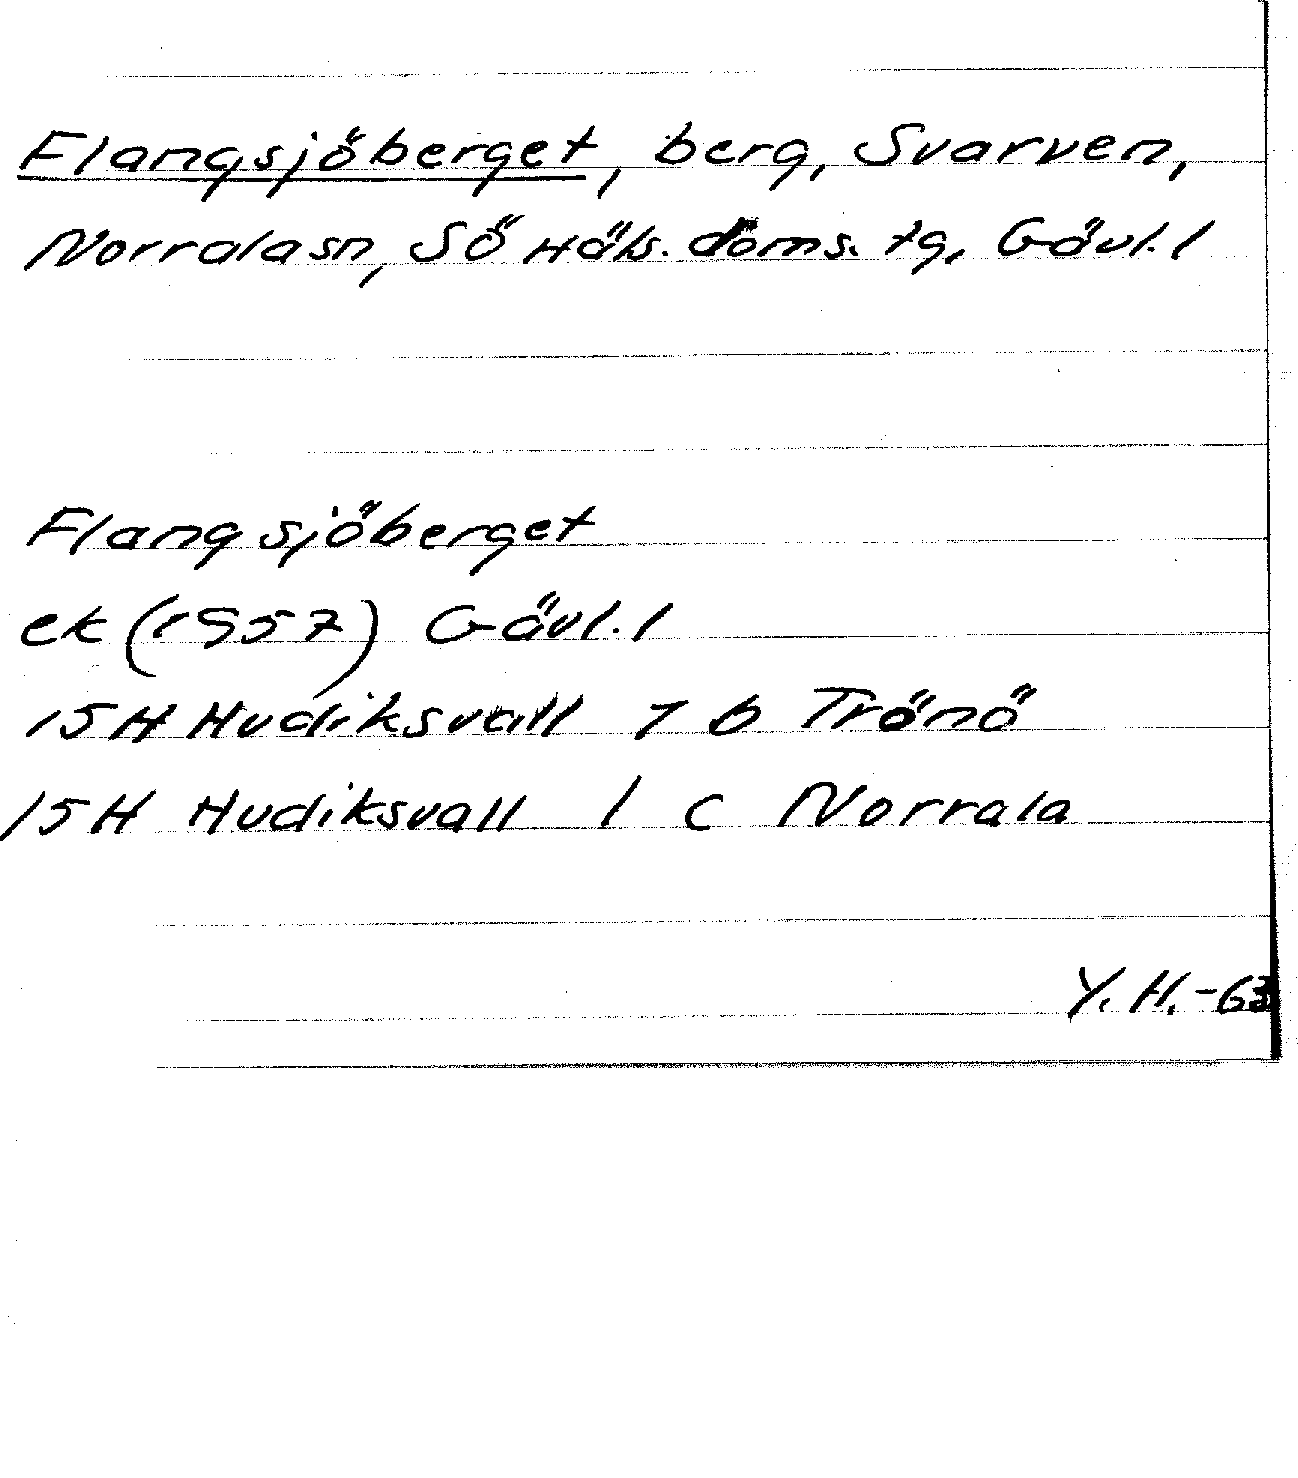 Flangsjöberget, berg, Svarven,
Norralasn, Sö Häls. doms. tg, Gävl. l
Flangsjöberget
ek (1957) Gävl. l
15H Hudiksvall 7 b Trönö
15H Hudiksvall 1 c Norrala
Y. H. -63